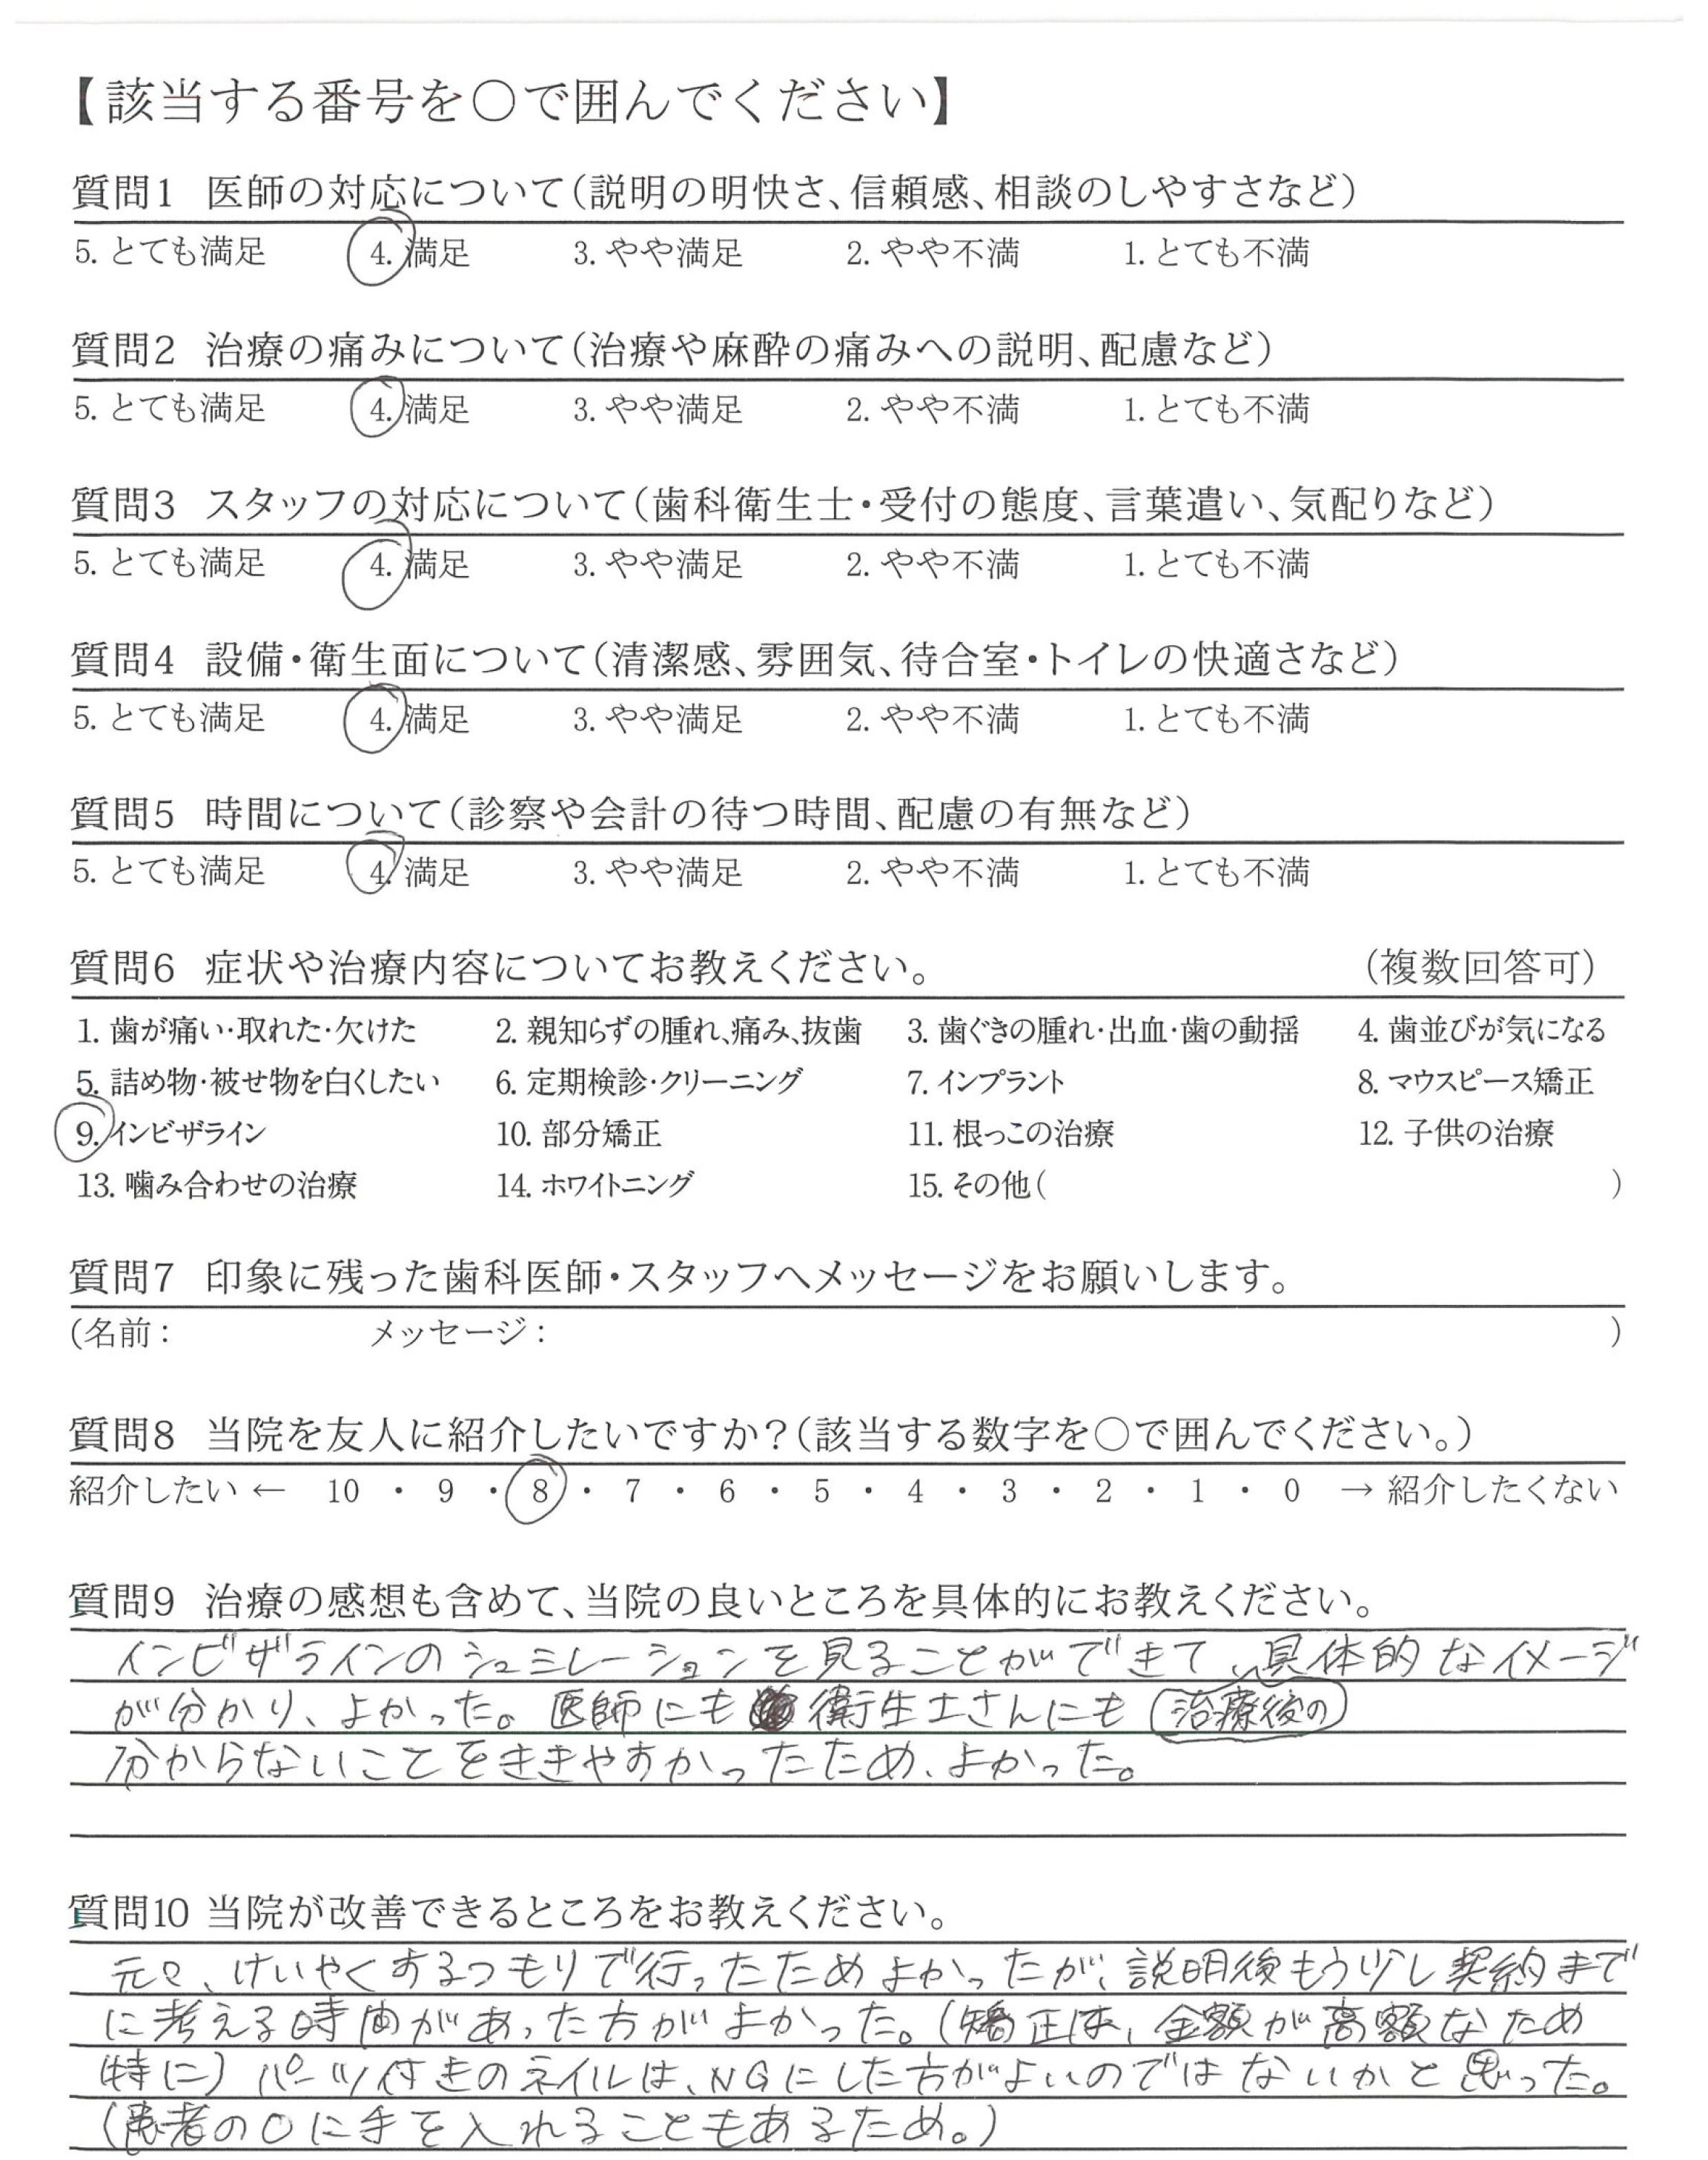 【該当する番号を〇で囲んでください】
質問1 医師の対応について(説明の明快さ、信頼感、相談のしやすさなど)
5. とても満足 4. 満足 3. やや満足 2. やや不満 1. とても不満
質問2 治療の痛みについて(治療や麻酔の痛みへの説明、配慮など)
5. とても満足 4. 満足 3. やや満足 2. やや不満 1. とても不満
質問3 スタッフの対応について(歯科衛生士・受付の態度、言葉遣い、気配りなど)
5. とても満足 4. 満足 3. やや満足 2. やや不満 1. とても不満
質問4 設備・衛生面について(清潔感、雰囲気、待合室・トイレの快適さなど)
5. とても満足 4. 満足 3. やや満足 2. やや不満 1. とても不満
質問5 時間について(診察や会計の待つ時間、配慮の有無など)
5. とても満足 4. 満足 3. やや満足 2. やや不満 1. とても不満
質問6 症状や治療内容についてお教えください。 (複数回答可)
1. 歯が痛い・取れた・欠けた 2. 親知らずの腫れ、痛み、抜歯 3. 歯ぐきの腫れ・出血・歯の動揺 4. 歯並びが気になる
5. 詰め物・被せ物を白くしたい 6. 定期検診・クリーニング 7. インプラント 8. マウスピース矯正
9. インビザライン 10. 部分矯正 11. 根っこの治療 12. 子供の治療
13. 噛み合わせの治療 14. ホワイトニング 15. その他( )
質問7 印象に残った歯科医師・スタッフへメッセージをお願いします。
(名前: メッセージ: )
質問8 当院を友人に紹介したいですか?(該当する数字を〇で囲んでください。)
紹介したい ← 10 ・ 9 ・ 8 ・ 7 ・ 6 ・ 5 ・ 4 ・ 3 ・ 2 ・ 1 ・ 0 → 紹介したくない
質問9 治療の感想も含めて、当院の良いところを具体的にお教えください。
インビザラインのシュミレーションを見ることができて、具体的なイメージ
が分かり、よかった。医師にも衛生士さんにも治療後の
分からないことをききやすかったため、よかった。
質問10 当院が改善できるところをお教えください。
元々、けいやくするつもりで行ったためよかったが、説明後もう少し契約まで
に考える時間があった方がよかった。(矯正は、金額が高額なため
特に)パーツ付きのネイルは、NGにした方がよいのではないかと思った。
(患者の口に手を入れることもあるため。)